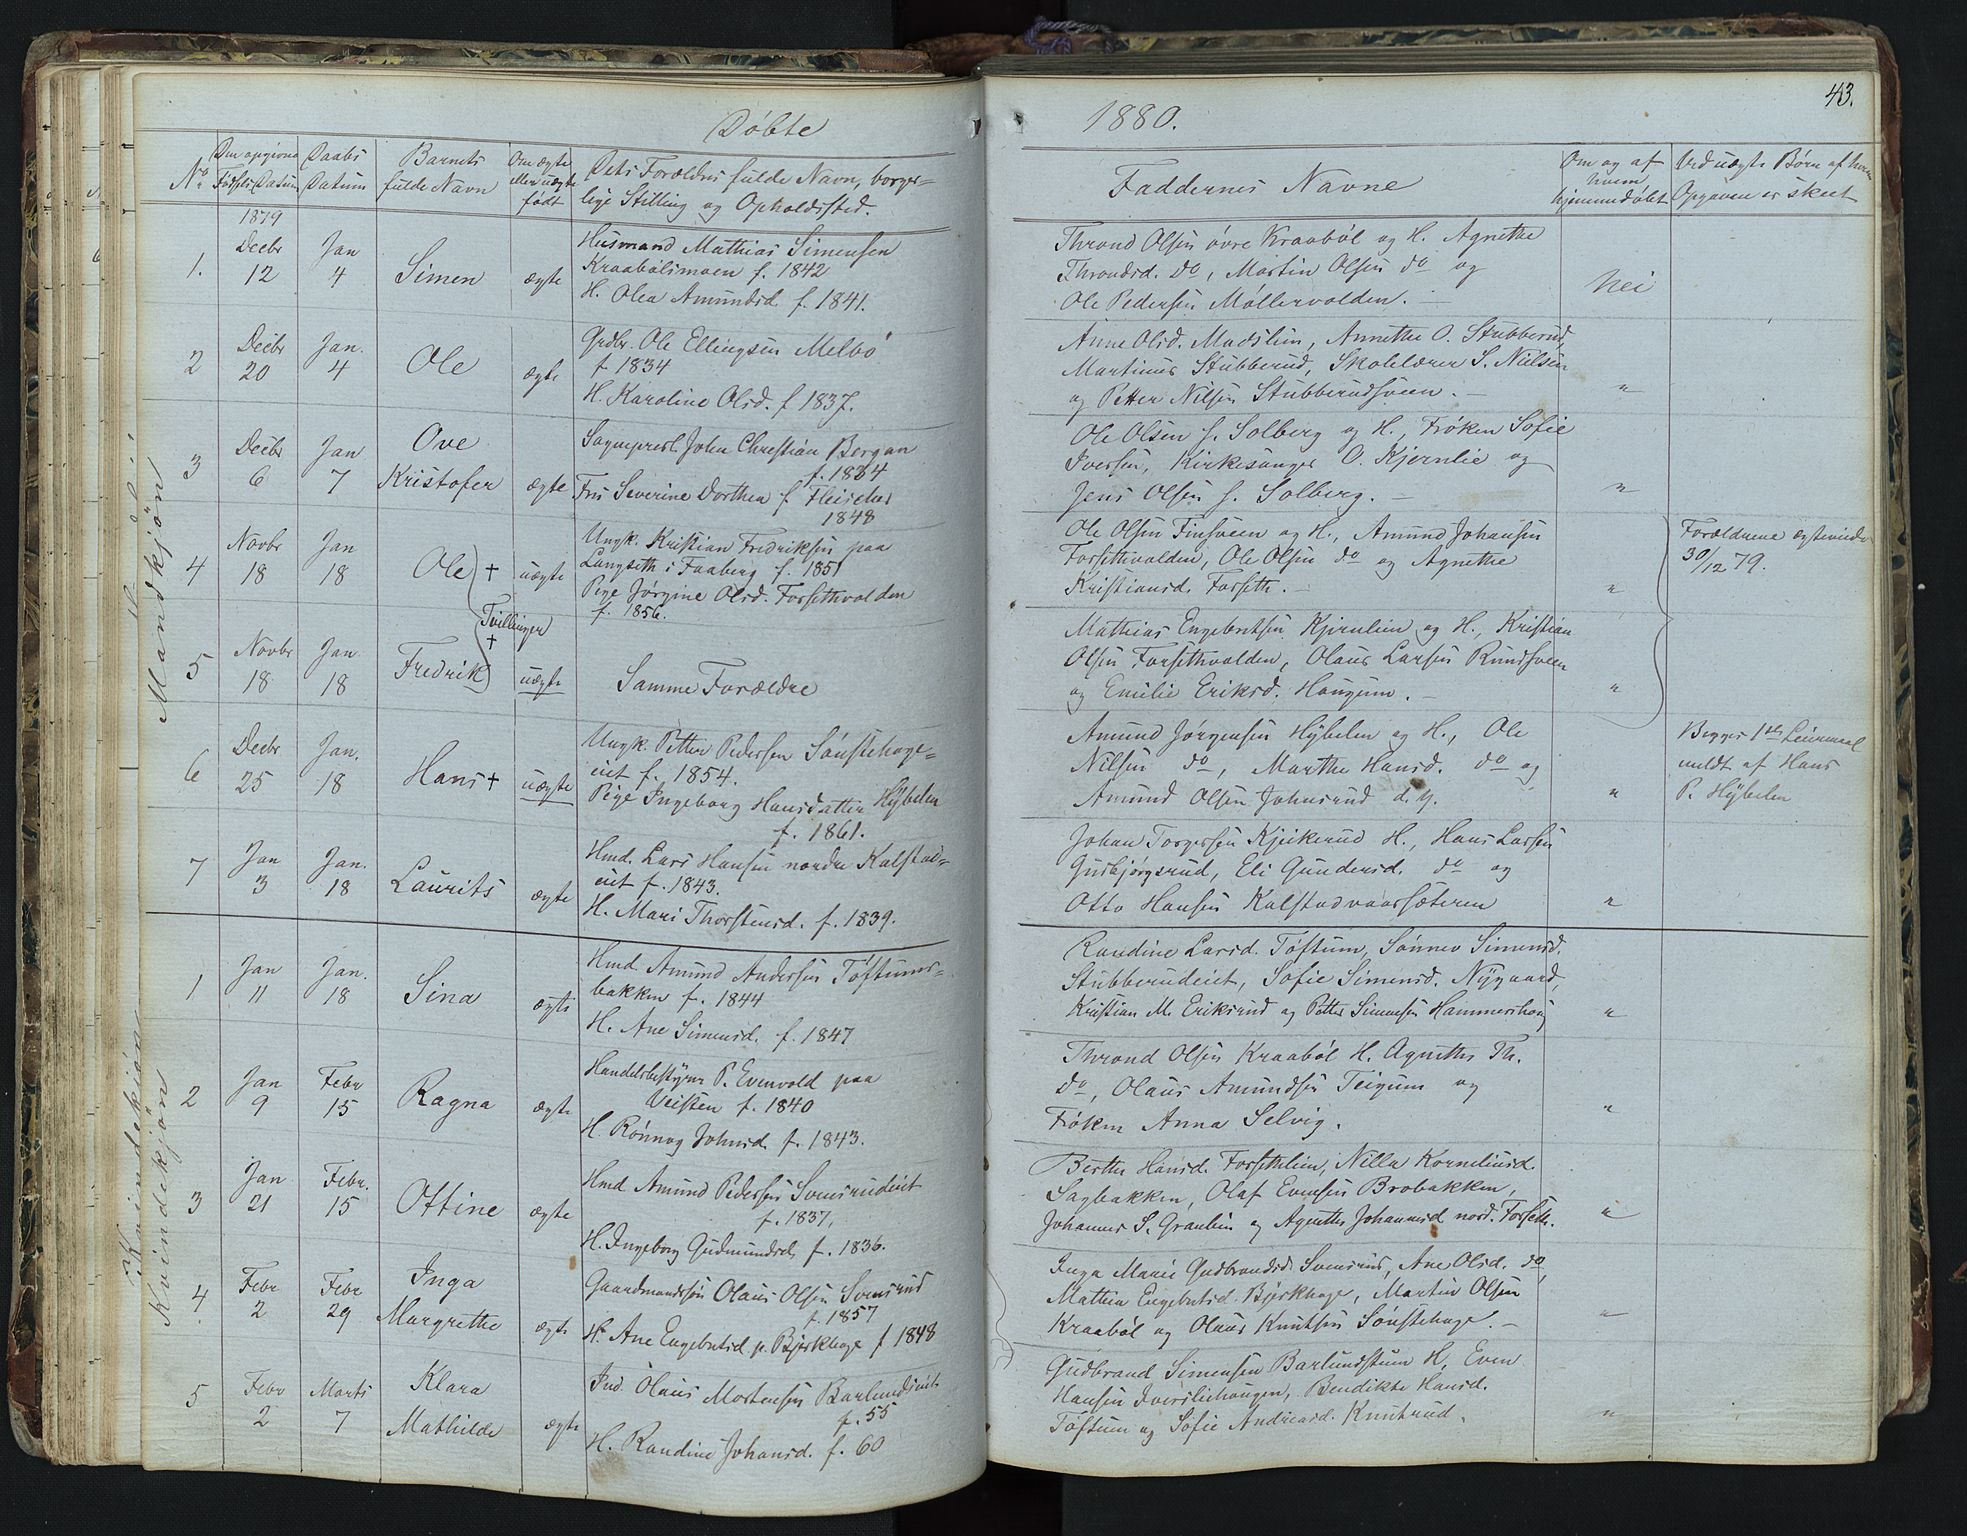 Døbte
1880.
43.
No
Den opgivne Fødsels Datum
Daabs Datum
Barnets fulde Navn
Om ægte eller uægte født
Dets Forældres fulde Navn, borger=
lige Stilling og Opholdssted.
Faddernes Navne
Om og af hvem hjemmedøbt
Ved uægte Børn af hvem
Opgaven er skeet
Mandkjøn
1879
1. Decbr 12 Jan 4 Simen ægte
Husmand Mathias Simensen
Kraabølsmoen f. 1842
H. Olea Amundsd. f. 1841.
Thrond Olsen øvre Kraabøl og H. Agnethe
Throndsd. do, Martin Olsen do og
Ole Pedersen Møllervolden. —
Nei
2 Decbr 20 Jan. 4 Ole ægte
Grdbr. Ole Ellingsen Melbø
f 1834
H. Karoline Olsd. f 1837.
Anne Olsd. Madslien, Annethe O. Stubberud,
Martinus Stubberud, Skolelærer S. Nielsen
og Petter Nilsen Stubberudsveen. —
"
3 Decbr 6 Jan 7 Ove Kristofer ægte
Sogneprest John Christian Bergan
f. 1834
Fru Severine Dorthea f Fleischer
1848
Ole Olsen s. Solberg og H., Frøken Sofie
Iversen, Kirkesanger O. Kjernlie og
Jens Olsen s. Solberg. —
"
4 Novbr 18 Jan 18 Ole † uægte
Ungk. Kristian Fredriksen paa
Langseth i Faaberg f. 1851
Pige Jørgine Olsd. Forsethvolden
f. 1856.
Tvillinger
Ole Olsen Finsveen og H., Amund Johansen
Forsethvolden, Ole Olsen do og Agnethe
Kristiansd. Forseth. —
"
Forældrene ægteviede
30/12 79.
5 Novbr 18 Jan. 18 Fredrik † uægte
Samme Forældre
Mathias Engebretsen Kjernlien og H., Kristian
Olsen Forsethvolden, Olaus Larsen Rundsveen
og Emilie Eriksd. Haugum. —
"
6 Decbr 25 Jan. 18 Hans † uægte
Ungk. Petter Pedersen Sønstehage=
eiet f. 1854.
Pige Ingeborg Hansdatter Hÿbelen
f. 1861.
Amund Jørgensen Hÿbelen og H., Ole
Nilsen do, Marthe Hansd. do og
Amund Olsen Johnsrud d. y.
"
Begges 1ste Leiermaal
meldt af Hans
P. Hÿbelen
7 Jan 3 Jan. 18 Laurits ægte
Hmd. Lars Hansen nordre Kalstad=
eiet f. 1843.
H. Mari Thorstensd. f. 1839.
Johan Torgersen Kjeikerud H., Hans Larsen
Gudbjørgsrud, Eli Gundersd. do og
Otto Hansen Kalstadvaarsæteren
"
Kvindekjøn
Kvindekjøn
1 Jan 11 Jan. 18 Sina ægte
Hmd. Amund Andersen Tøftums=
bakken f. 1844
H. Ane Simensd. f. 1847
Randine Larsd. Tøftum, Sønnev Simensd.
Stubberudeiet, Sofie Simensd. Nÿgaard,
Kristian M. Eriksrud og Petter Simensen Hammershoug
"
2 Jan 9 Febr 15 Ragna ægte
Handelsbestyrer P. Evenvold paa
Veisten f. 1840
H. Rønnog Johnsd. f. 1843.
Thrond Olsen Kraabøl H. Agnethe Th.
do, Olaus Amundsen Teigum og
Frøken Anna Selvig.
"
3 Jan 21 Febr. 15 Ottine ægte
Hmd. Amund Pedersen Svensrudeiet
f. 1837,
H. Ingeborg Gudmundsd. f. 1836.
Berthe Hansd. Forsethlien, Nilla Korneliusd.
Sagbakken, Olaf Evensen Brobakken,
Johannes S. Graulien og Agnethe Johannesd nord. Forseth.
"
4. Febr 2 Febr 29 Inga Margrethe ægte
Gaardmandssøn Olaus Olsen Svensrud
f. 1857
H. Ane Engebretsd. p. Bjerkhage f 1848
Inga Marie Gudbrandsd. Svensrud, Ane Olsd. do,
Mathea Engebretsd. Bjerkhage, Martin Olsen
Kraabøl og Olaus Knutsen Sønstehage. —
"
5 Febr 2 Marts 7 Klara Mathilde ægte
Ind. Olaus Mortensen Barlundseiet
f. 55
H. Randine Johansd. f. 60
Gudbrand Simensen Barlundstuen H, Even
Hansen Iverslihaugen, Bendikte Hansd.
Tøftum og Sofie Andreasd. Knutrud.
"